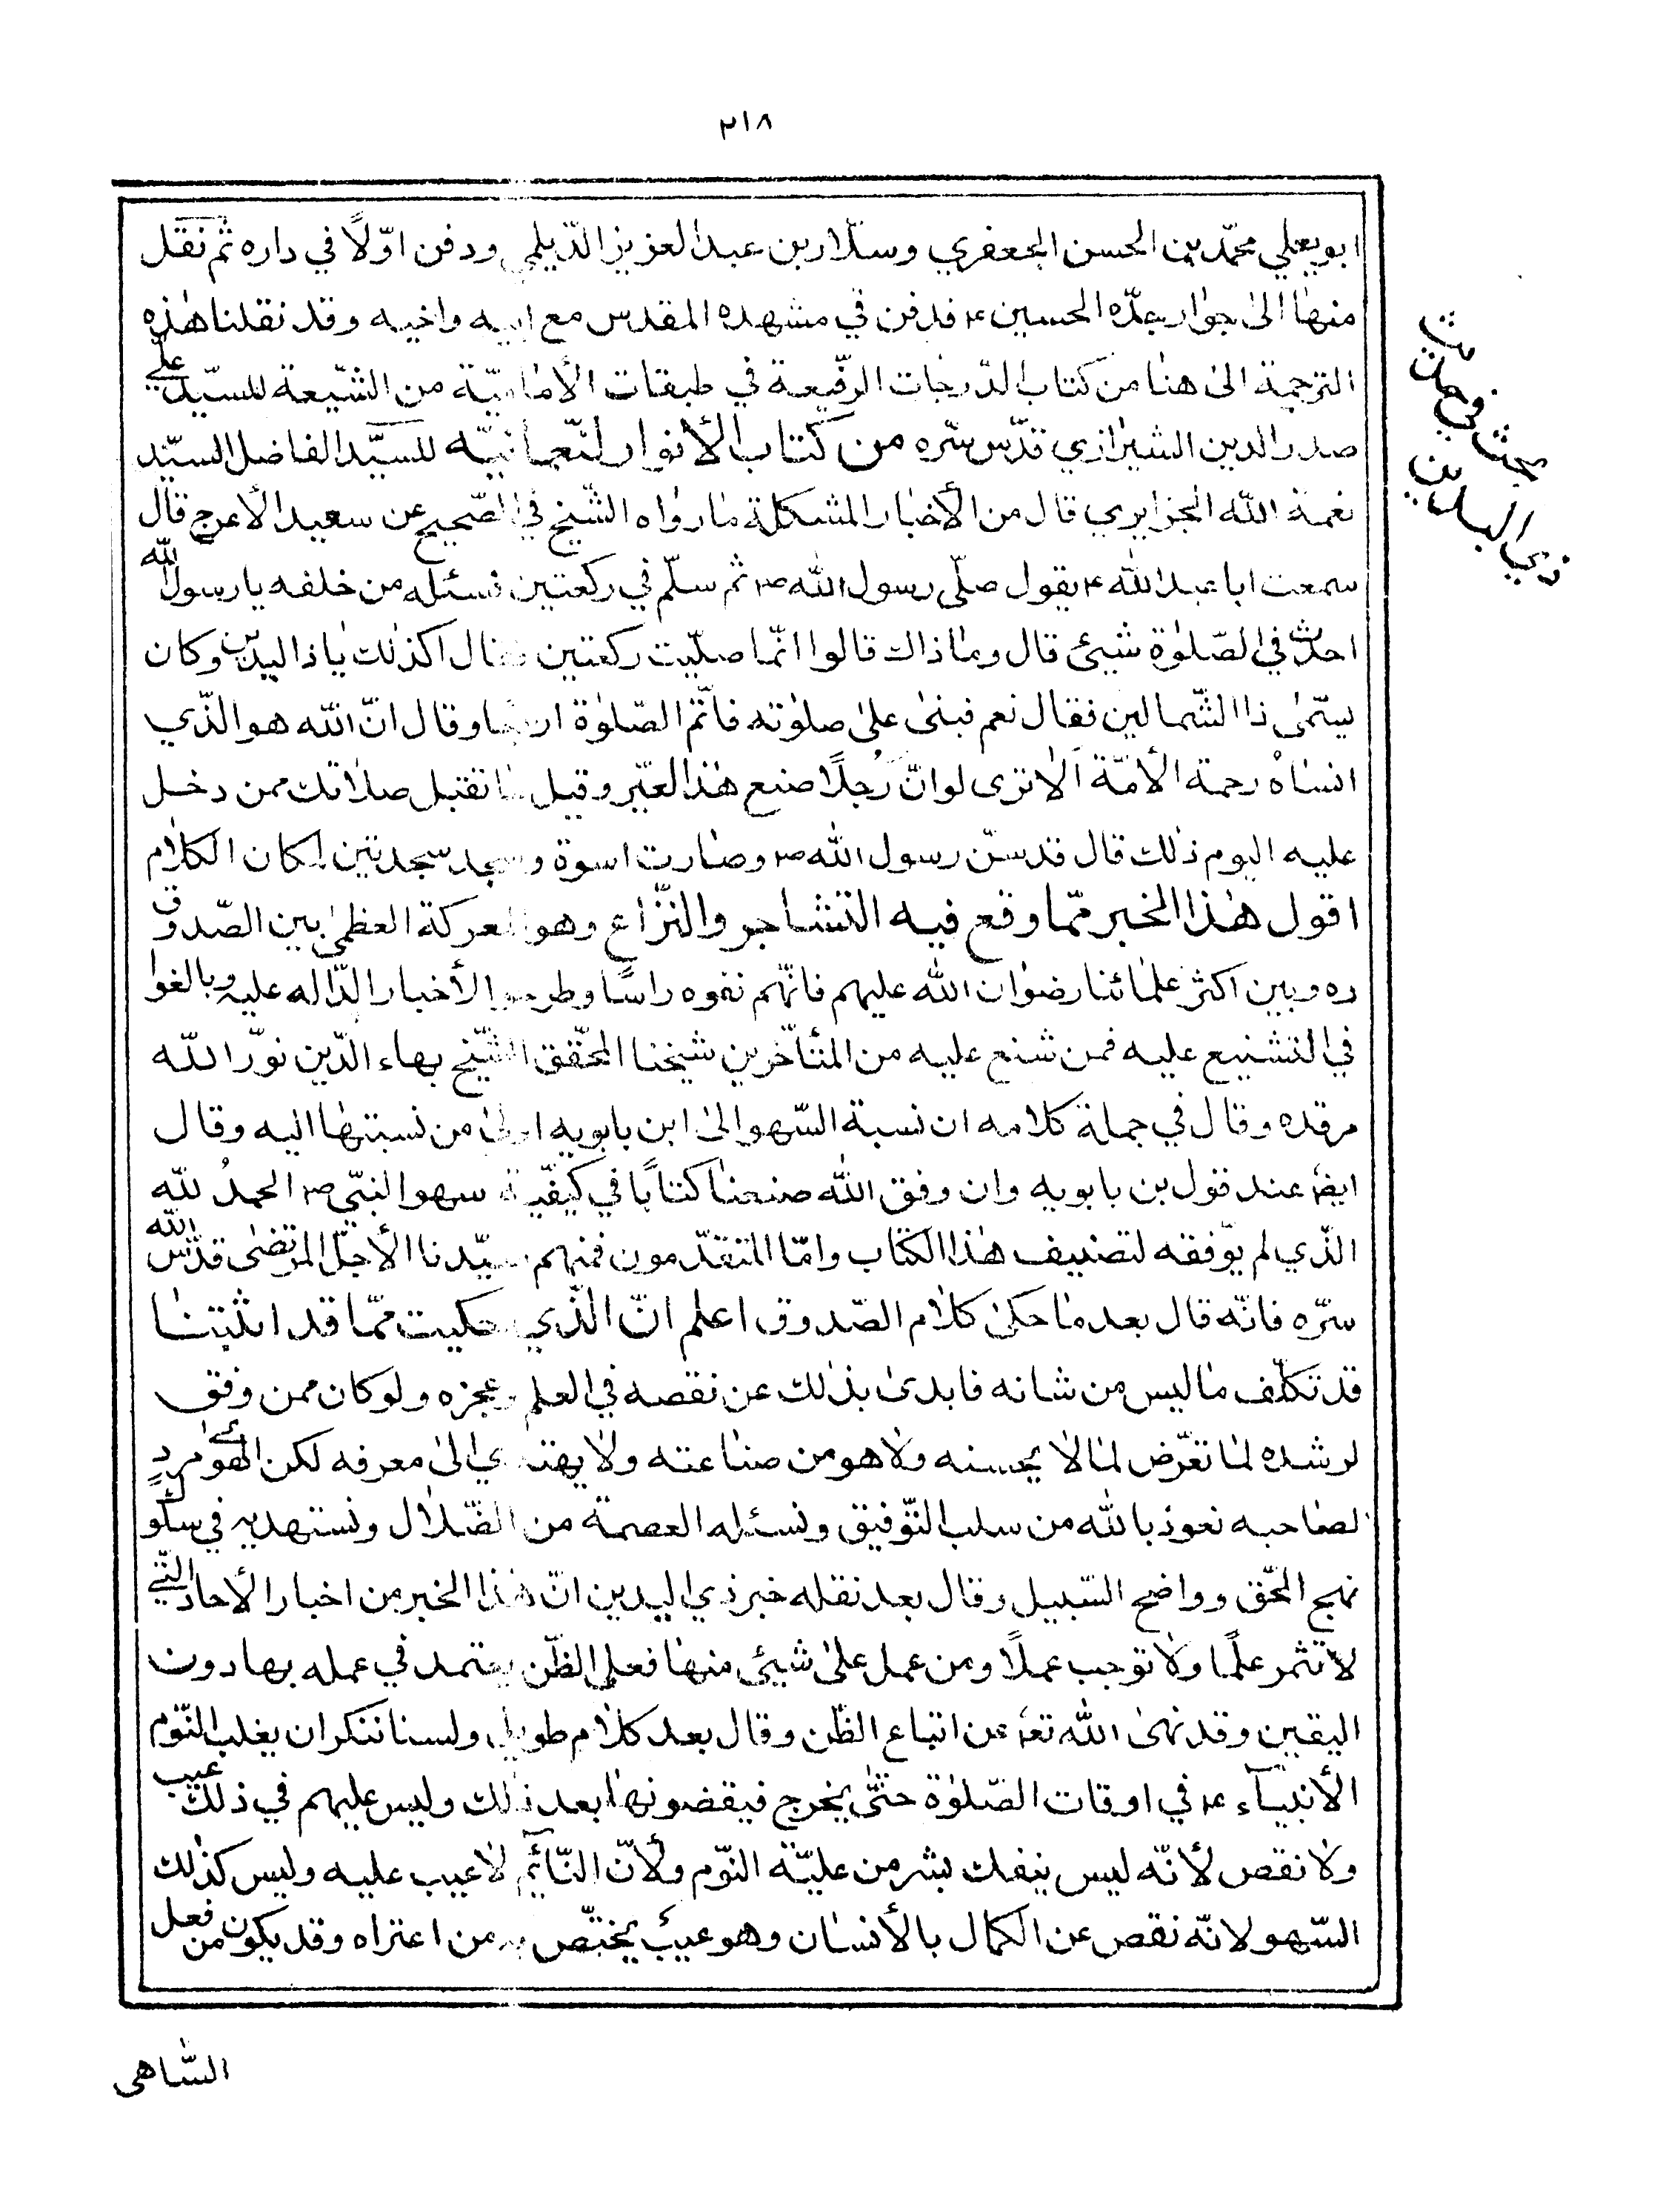 ٢١٨
ابو يعلي محمّد بن الحسن الجعفري وسلّار بن عبد العزيز الدّيلمي ودفن اوّلاً في داره ثم نقل
منها الى جوار جدّه الحسين ع فدفن في مشهده المقدس مع ابيه واخيه وقد نقلنا هذه
الترجمة الى هنا من كتاب الدّرجات الرفّيعة في طبقات الأماميّة من الشّيعة للسيّد علي
صدر الدين الشيرازي قدّس سّره من كتاب الأنوار النّعمانيّه للسيَّد الفاضل السيّد
نعمة اللّه الجزايري قال من الأخبار المشكلة ما رواه الشّيخ في الصّحيح عن سعيد الأعرج قال
سمعت ابا عبد الله ع يقول صلّى رسول الله ص ثم سلّم في ركعتين فسئله من خلفه يا رسول الله
احدث في الصّلوة شيئ قال وما ذاك قالوا انّما صلّيت ركعتين فقال اكذلك يا ذا اليدين وكان
يسمّى ذا الشّمالين فقال نعم فبنى على صلوته فاتّم الصّلوة اربعا وقال انّ اللّه هو الذّي
انساه رحمة الأمّة ألا ترى لو انّ رُجلًا صنع هذا لعيّر وقيل ما تقبل صلاتك ممن دخل
عليه اليوم ذلك قال قد سنّ رسول الله ص وصارت اسوة وسجد سجدتين لمكان الكلام
اقول هذا الخبر ممّا وقع فيه التشاجر والنزّاع وهو المعركة العظمى بين الصّدوق
ره وبين اكثر علمائنا رضوان الله عليهم فانّهم نفوه راسًا وطرحوا الأخبار الدّاله عليه وبالغوا
في التشنيع عليه فمن شنع عليه من المتأخّرين شيخنا المحقّق الشّيخ بهاء الدّين نوّر اللّه
مرقده وقال في جملة كلامه ان نسبة السّهو الى ابن بابويه اولى من نسبتها اليه وقال
ايضا عند قول بن بابويه وان وفق الله صنعنا كتابًا في كيفّية سهو النبّي ص الحمدُ للّه
الذّي لم يوّفقه لتصنيف هذا الكتاب وامّا المتقدّمون فمنهم سيّدنا الأجلّ المرتضى قدّس اللّه
سرّه فانّه قال بعد ما حكى كلام الصّدوق اعلم انّ الذّي حكيت ممّا قد اثبتنا
قد تكلّف ما ليس من شانه فابدى بذلك عن نقصه في العلم وعجزه ولو كان ممن وفق
لرشده لما تعرّض لما لا يحسنه ولا هو من صناعته ولا يهتدي الى معرفه لكن الهوى مردٍ
لصاحبه نعوذ بالله من سلب التّوفيق ونسئله العصمة من الضّلال ونستهديه في سلوك
نهج الحّق وواضح السّبيل وقال بعد نقله خبر ذي اليدين انّ هذا الخبر من اخبار الأحاد التّي
لا تثمر علمًا ولا توجب عملًا ومن عمل على شيئ منها فعلى الظّن يعتمد في عمله بها دون
اليقين وقد نهى اللّه تعا عن اتباع الظّن وقال بعد كلام طويل ولسنا ننكر ان يغلب النّوم
الأنبيآء ع في اوقات الصّلوة حتّى يخرج فيقضونها بعد ذلك وليس عليهم في ذلك عيب
ولا نقص لأنّه ليس ينفك بشر من عليّة النوّم ولأنّ النّائم لا عيب عليه وليس كذلك
السّهو لانّه نقص عن الكمال بالأنسان وهو عيب يختّص به من اعتراه وقد يكون من فعل
السّاهى
بحث في حديث
ذي اليدين